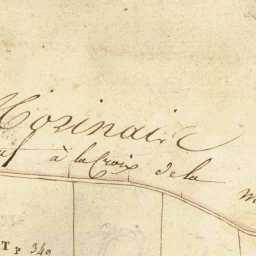 Morinaie
à la Croix de la
T P 340